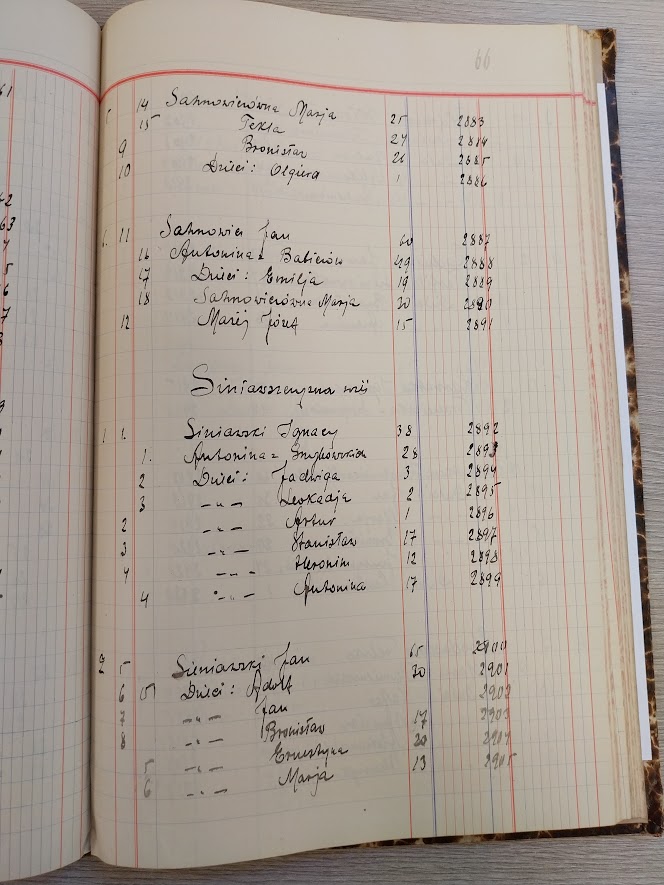 66
14 Sahnowiczówna Marja 25 2883
15 Tekla 24 2884
9 Bronisław 26 2885
10 Dzieci: Olgierd 1 2886
6. 11 Sahnowicz Jan 60 2887
16 Antonina z Babiczów 49 2888
17 Dzieci: Emilja 19 2889
18 Sahnowiczówna Marja 20 2890
12 Józef 15 2891
Siniawszczyzna wieś
1 1. Siniawski Ignacy 38 2892
1. Antonina z 28 2893
2 Dzieci: Jadwiga 3 2894
3 -"- Leokadja 2 2895
2 -"- Artur 1 2896
3 -"- Stanisław 17 2897
4 -"- Heronim 12 2898
4 -"- Antonina 17 2899
2 5 Sieniawski Jan 65 2900
6 Dzieci: Adolf 30 2901
7 -"- Jan 2902
8 -"- Bronisław 17 2903
5 -"- Ernestyna 20 2904
6 -"- Marja 13 2905